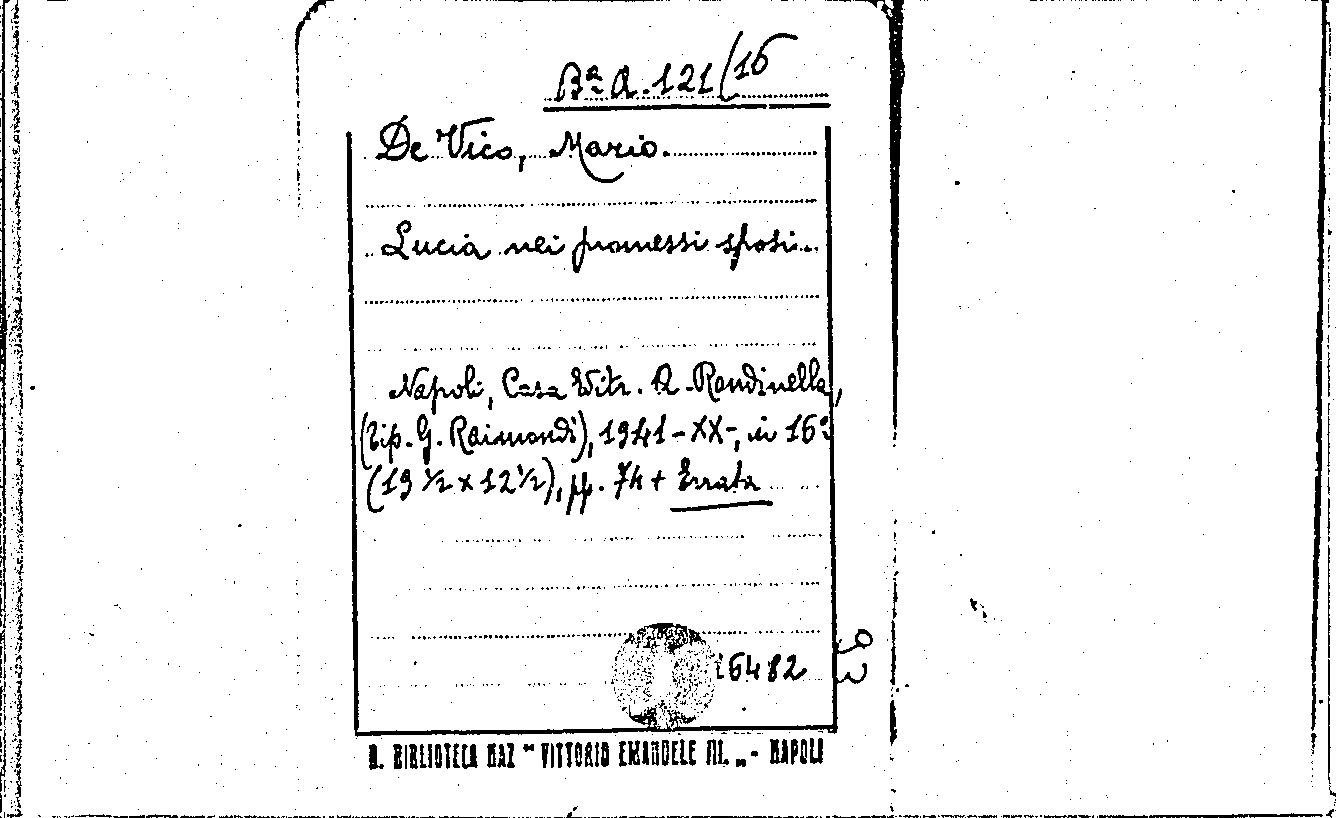 Bª A. 121/16
De Vico, Mario.
Lucia nei promessi sposi.
Napoli, Casa Editr. A Rondinella,
(Tip. G. Raimondi), 1941-XX-, in 16º
(19 ½ x 12 ½), pp. 74 + Errata
i6482
93
R. BIBLIOTECA NAZ "VITTORIO EMANUELE III." - NAPOLI